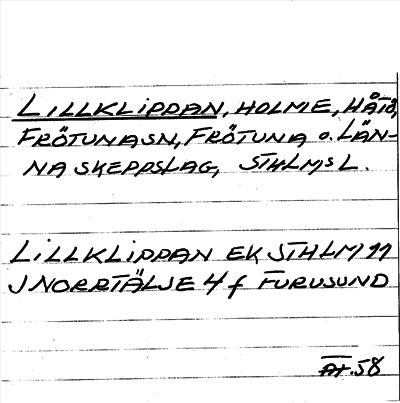 LILLKLIPPAN, HOLME, HÅTÖ,
FRÖTUNA SN, FRÖTUNA o. LÄN-
NA SKEPPSLAG, STHLMS L.
LILLKLIPPAN EK STHLM 11
J NORRTÄLJE 4 f FURUSUND
AT. 58